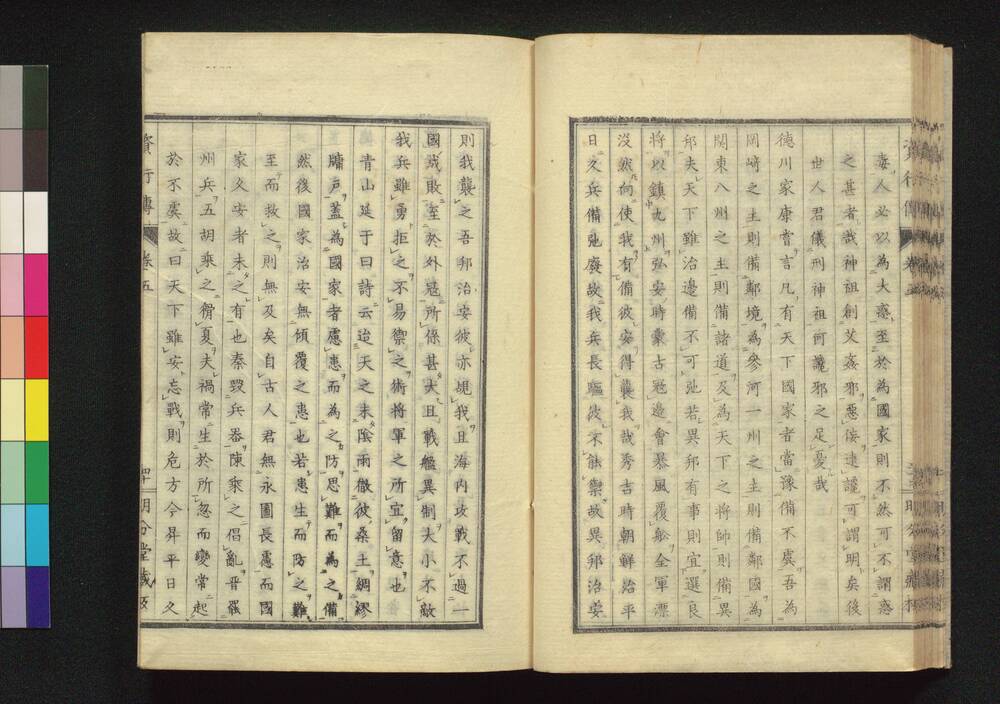 毒人必以為大惑至於為國家則不然可不謂惑
之甚者哉神祖創艾姦邪惡佞遠讒可謂明矣後
世人君儀刑神祖何讒邪之足憂哉
德川家康嘗言凡有天下國家者當豫備不虞吾為
岡﨑之主則備鄰境為參河一州之主則備鄰國為
関東八州之主則備諸道及為天下之將帥則備異
邦夫天下雖治邊備不可弛若異邦有事則宜選良
將以鎮九州弘安時蒙古冦邊會暴風覆舩全軍漂
沒然向使我有備彼安得襲我哉秀吉時朝鮮治平
日久兵備弛廢故我兵長驅彼不能禦故異邦治安
則我襲之吾邦治安彼亦覬我且海内攻戰不過一
國成敗至於外冦所係甚大且戰艦異制大小不敵
我兵雖勇拒之不易禦之術將軍之所宜留意也
青山延于曰詩云迨天之未陰雨徹彼桑土綢繆
牖戸蓋為國家者慮患而為之防思難而為之備
然後國家治安無傾覆之患也若患生而防之難
至而救之則無及矣自古人君無永圖長慮而國
家久安者未之有也秦毀兵器陳乘之倡亂晋罷
州兵五胡乘之猾夏夫禍常生於所忽而變常起
於不虞故曰天下雖安忘戰則危方今昇平日久
資行傳
卷五
明分堂藏版